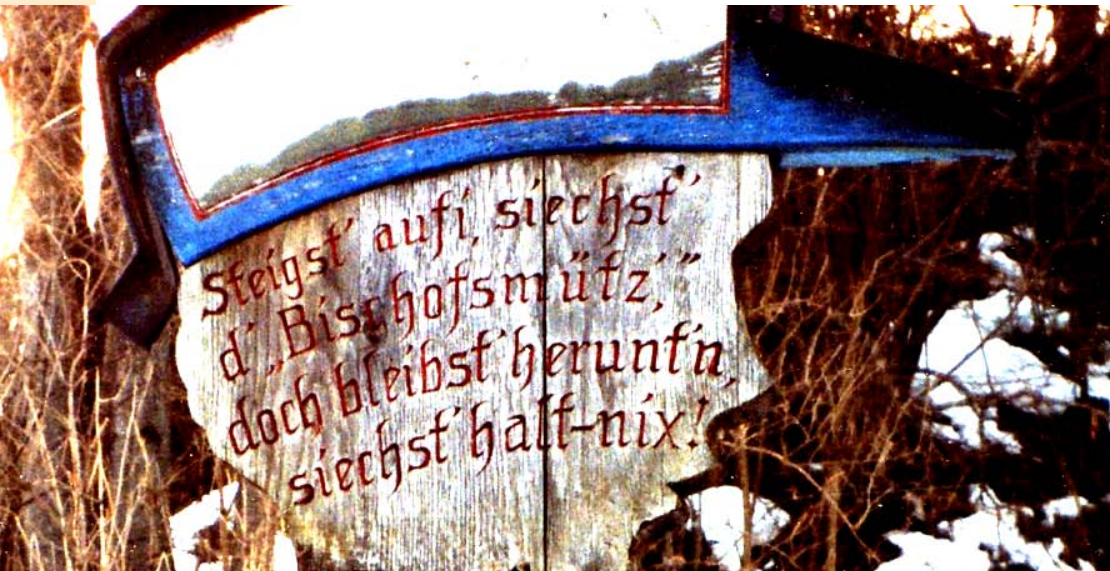 Steigst' aufi, siechst'
d' „Bischofsmütz',"
doch bleibst' herunt'n,
siechst' halt-nix!